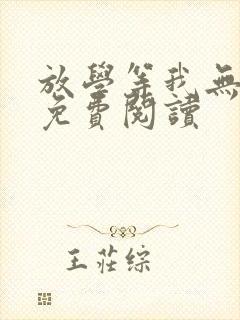 放學等我無
免費閱讀
王莊綜